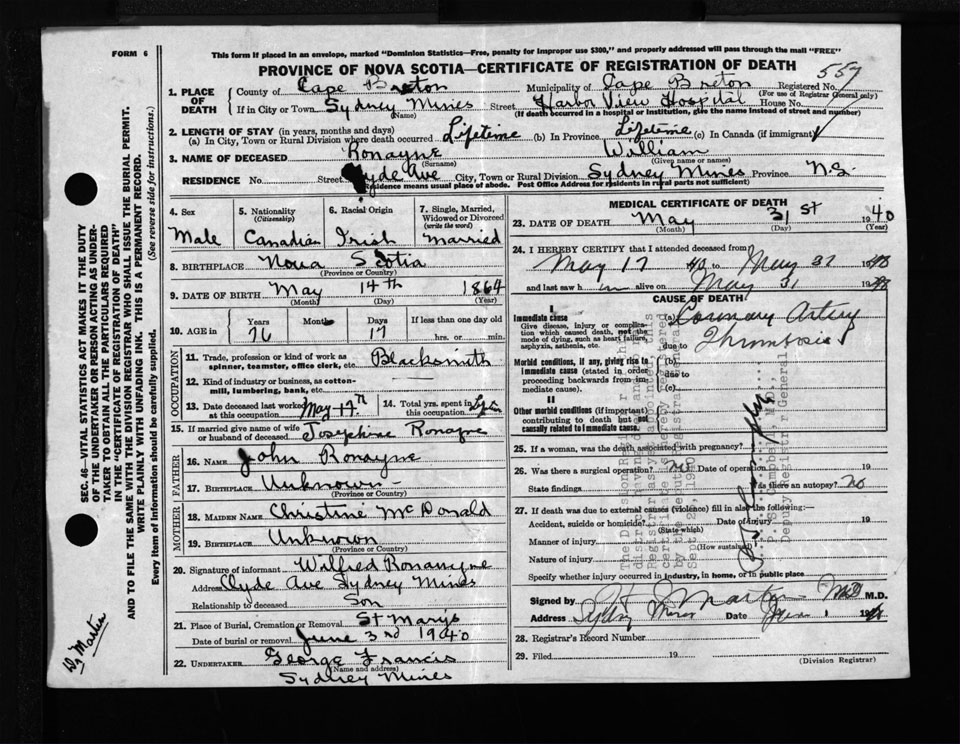 FORM 6
This form if placed in an envelope, marked "Dominion Statistics—Free, penalty for improper use $300," and properly addressed will pass through the mail "FREE"
PROVINCE OF NOVA SCOTIA—CERTIFICATE OF REGISTRATION OF DEATH
557
1. PLACE OF DEATH County of Cape Breton Municipality of Cape Breton Registered No.
(For use of Registrar General only)
If in City or Town Sydney Mines Street Harbor View Hospital House No.
(Name) (If death occurred in a hospital or institution, give its name instead of street and number)
2. LENGTH OF STAY (in years, months and days)
(a) In City, Town or Rural Division where death occurred Lifetime (b) In Province Lifetime (c) In Canada (if immigrant)
3. NAME OF DECEASED Ronayne William
(Surname) (Given name or names)
RESIDENCE No. Street Clyde Ave City, Town or Rural Division Sydney Mines Province N.S.
Residence means usual place of abode. Post Office Address for residents in rural parts not sufficient)
4. Sex Male
5. Nationality (Citizenship) Canadian
6. Racial Origin Irish
7. Single, Married, Widowed or Divorced (write the word) Married
8. BIRTHPLACE Nova Scotia
(Province or Country)
9. DATE OF BIRTH May 14th 1864
(Month) (Day) (Year)
10. AGE in Years 76 Months Days 17 If less than one day old
hrs. or min.
OCCUPATION
11. Trade, profession or kind of work as spinner, teamster, office clerk, etc. Blacksmith
12. Kind of industry or business, as cotton-mill, lumbering, bank, etc.
13. Date deceased last worked at this occupation May-17th
14. Total yrs. spent in this occupation
15. If married give name of wife or husband of deceased Josephine Ronayne
FATHER
16. NAME John Ronayne
17. BIRTHPLACE Unknown
(Province or Country)
MOTHER
18. MAIDEN NAME Christine McDonald
19. BIRTHPLACE Unknown
(Province or Country)
20. Signature of informant Wilfred Ronanyne
Address Clyde Ave Sydney Mines
Relationship to deceased Son
21. Place of Burial, Cremation or Removal St Marys
Date of burial or removal June 3rd 1940
22. UNDERTAKER George Francis
(Name and address)
Sydney Mines
MEDICAL CERTIFICATE OF DEATH
23. DATE OF DEATH May 31st 1940
(Month) (Day) (Year)
24. I HEREBY CERTIFY that I attended deceased from
May 17 40 to May 31 1940
and last saw h im alive on May 31 1940
CAUSE OF DEATH
I
Immediate cause (a) Coronary Artery
Give disease, injury or complication which caused death, not the mode of dying, such as heart failure, asphyxia, asthenia, etc.
due to Thrombosis
Morbid conditions, if any, giving rise to immediate cause (stated in order proceeding backwards from immediate cause).
(b)
due to
(c)
II
Other morbid conditions (if important) contributing to death but not causally related to immediate cause.
25. If a woman, was the death associated with pregnancy?
26. Was there a surgical operation? no Date of operation 19
State findings Was there an autopsy? no
27. If death was due to external causes (violence) fill in also the following:—
Accident, suicide or homicide? Date of injury 19
(State which)
Manner of injury
(How sustained)
Nature of injury
Specify whether injury occurred in industry, in home, or in public place
Signed by Martin MD M.D.
Address Sydney Mines Date June 1 19
28. Registrar's Record Number
29. Filed 19
(Division Registrar)
SEC. 46—VITAL STATISTICS ACT MAKES IT THE DUTY
OF THE UNDERTAKER OR PERSON ACTING AS UNDERTAKER TO OBTAIN ALL THE PARTICULARS REQUIRED
IN THE "CERTIFICATE OF REGISTRATION OF DEATH"
AND TO FILE THE SAME WITH THE DIVISION REGISTRAR WHO SHALL ISSUE THE BURIAL PERMIT.
WRITE PLAINLY WITH UNFADING INK. THIS IS A PERMANENT RECORD.
Every item of information should be carefully supplied. (See reverse side for instructions.)
Dr Martin